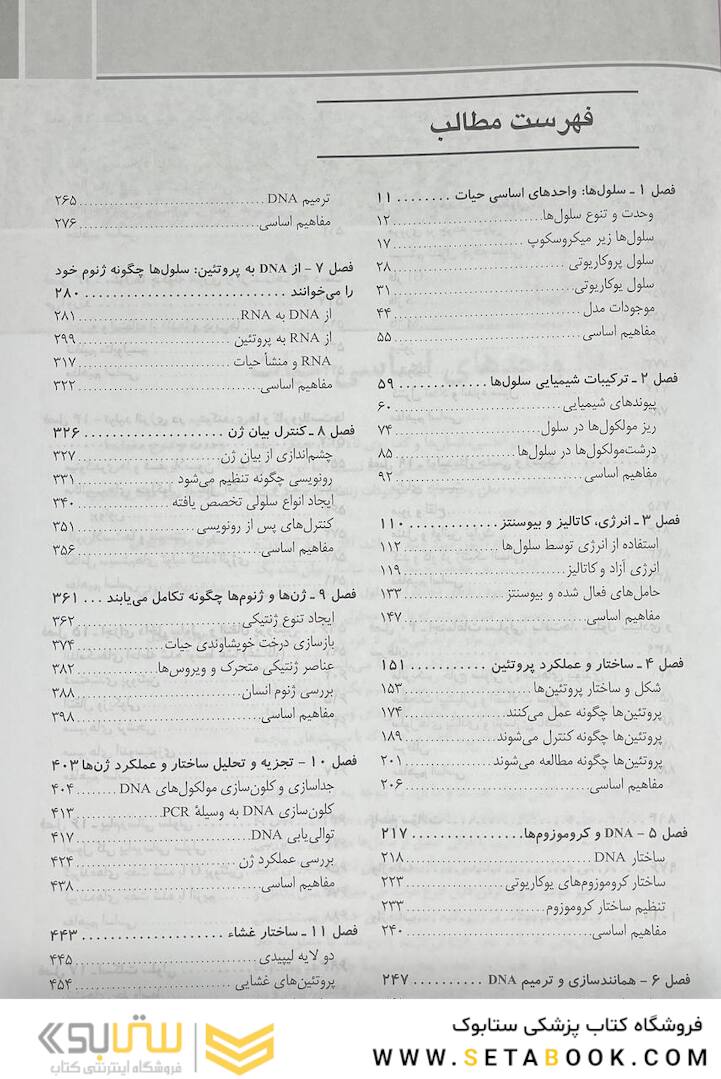 فهرست مطالب
فصل ۱ ـ سلول‌ها: واحدهای اساسی حیات ........ ۱۱
وحدت و تنوع سلول‌ها .................... ۱۲
سلول‌ها زیر میکروسکوپ .................... ۱۷
سلول پروکاریوتی .................... ۲۸
سلول یوکاریوتی .................... ۳۱
موجودات مدل .................... ۴۴
مفاهیم اساسی .................... ۵۵
فصل ۲ ـ ترکیبات شیمیایی سلول‌ها ............. ۵۹
پیوندهای شیمیایی .................... ۶۰
ریز مولکول‌ها در سلول .................... ۷۴
درشت‌مولکول‌ها در سلول‌ها .................... ۸۵
مفاهیم اساسی .................... ۹۲
فصل ۳ ـ انرژی، کاتالیز و بیوسنتز ............. ۱۱۰
استفاده از انرژی توسط سلول‌ها ............. ۱۱۲
انرژی آزاد و کاتالیز .................... ۱۱۹
حامل‌های فعال شده و بیوسنتز ............. ۱۳۳
مفاهیم اساسی .................... ۱۴۷
فصل ۴ ـ ساختار و عملکرد پروتئین ........... ۱۵۱
شکل و ساختار پروتئین‌ها .................... ۱۵۳
پروتئین‌ها چگونه عمل می‌کنند ............. ۱۷۴
پروتئین‌ها چگونه کنترل می‌شوند ............. ۱۸۹
پروتئین‌ها چگونه مطالعه می‌شوند ............. ۲۰۱
مفاهیم اساسی .................... ۲۰۶
فصل ۵ - DNA و کروموزوم‌ها ................ ۲۱۷
ساختار DNA .................... ۲۱۸
ساختار کروموزوم‌های یوکاریوتی ............. ۲۲۳
تنظیم ساختار کروموزوم .................... ۲۳۳
مفاهیم اساسی .................... ۲۴۰
فصل ۶ - همانندسازی و ترمیم DNA .......... ۲۴۷
ترمیم DNA .................... ۲۶۵
مفاهیم اساسی .................... ۲۷۶
فصل ۷ - از DNA به پروتئین: سلول‌ها چگونه ژنوم خود
را می‌خوانند .................... ۲۸۰
از DNA به RNA .................... ۲۸۱
از RNA به پروتئین .................... ۲۹۹
RNA و منشأ حیات .................... ۳۱۷
مفاهیم اساسی .................... ۳۲۲
فصل ۸ ـ کنترل بیان ژن .................... ۳۲۶
چشم‌اندازی از بیان ژن .................... ۳۲۷
رونویسی چگونه تنظیم می‌شود ............. ۳۳۱
ایجاد انواع سلولی تخصص یافته ............. ۳۴۰
کنترل‌های پس از رونویسی .................... ۳۵۱
مفاهیم اساسی .................... ۳۵۶
فصل ۹ ـ ژن‌ها و ژنوم‌ها چگونه تکامل می‌یابند ... ۳۶۱
ایجاد تنوع ژنتیکی .................... ۳۶۲
بازسازی درخت خویشاوندی حیات ............. ۳۷۴
عناصر ژنتیکی متحرک و ویروس‌ها ............. ۳۸۲
بررسی ژنوم انسان .................... ۳۸۸
مفاهیم اساسی .................... ۳۹۸
فصل ۱۰ - تجزیه و تحلیل ساختار و عملکرد ژن‌ها ۴۰۳
جداسازی و کلون‌سازی مولکول‌های DNA ....... ۴۰۴
کلون‌سازی DNA به وسیلهٔ PCR ............. ۴۱۳
توالی‌یابی DNA .................... ۴۱۷
بررسی عملکرد ژن .................... ۴۲۴
مفاهیم اساسی .................... ۴۳۸
فصل ۱۱ - ساختار غشاء .................... ۴۴۳
دو لایه لیپیدی .................... ۴۴۵
پروتئین‌های غشایی .................... ۴۵۴
فروشگاه کتاب پزشکی ستابوک
WWW.SETABOOK.COM
ستابوک
فروشگاه اینترنتی کتاب